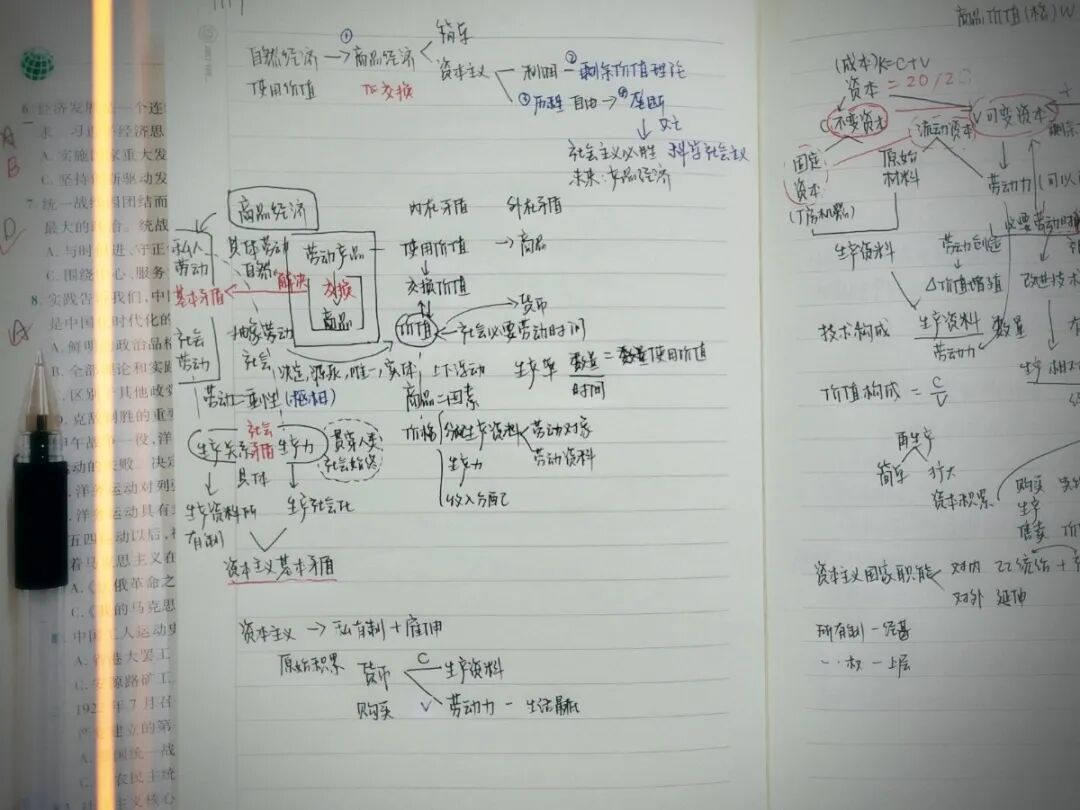 6. 经济发展是一个连
求。习近平经济思
A. 实施国家重大发
C. 坚持创新驱动发
7. 统一战线因团结而
最大的政治。统战
A. 与时俱进、守正
C. 围绕中心、服务
8. 实践告诉我们,中国
是中国化时代化的
A. 鲜明的政治品格
B. 全部理论和实践
C. 区别于其他政党
D. 克敌制胜的重要
甲午战争一役,洋
运动的失败。决定
洋务运动对列强
洋务运动具有
五四运动以后,社
着马克思主义在
A.《俄革命之
C.《我的马克思
中国工人运动史
A. 香港大罢工
C. 安源路矿工
1922年7月召
产党建立的第
A. 民国统一战
农民主统
社会主义核心
A
B
D
A
自然经济 → ① 商品经济 < 简单
资本主义
使用价值 交换
利用 ② 剩余价值理论
③ 历程 自由 → ④ 垄断
社会主义必胜 科学社会主义
未来:产品经济
商品经济 内在矛盾 外在矛盾
私人劳动 具体劳动 劳动产品 使用价值 → 商品
自然
基本矛盾 解决 交换 交换价值
商品 价值 货币
社会必要劳动时间
社会劳动 抽象劳动
社会 决定,源泉,唯一,实体 上下浮动 生产率 数量/时间 = 数量使用价值
劳动二重性(枢杻) 商品二因素
生产关系 社会矛盾 生产力 贯穿人类社会始终
价格 分配生产资料 劳动对象
劳动资料
具体 生产力
收入分配
生产资料所有制 生产社会化
资本主义基本矛盾
资本主义 → 私有制 + 雇佣
原始积累 货币 C 生产资料
购买 V 劳动力 -
商品价值(格)W
(成本)K=C+V
资本 = 20/2
C 不变资本 流动资本 V 可变资本 +
剩余
固定资本 原始材料 劳动力 (可以
(厂房机器) 必要劳动时
生产资料 劳动创造
△价值增殖 改进技术
技术构成 生产资料/劳动力 数量
价值构成 = C/V 生产
再生产
简单 扩大
资本积累 购买
生产
售卖 价
资本主义国家职能 对内 统治 +
对外 延伸
所有制 - 经基
、、权 - 上层